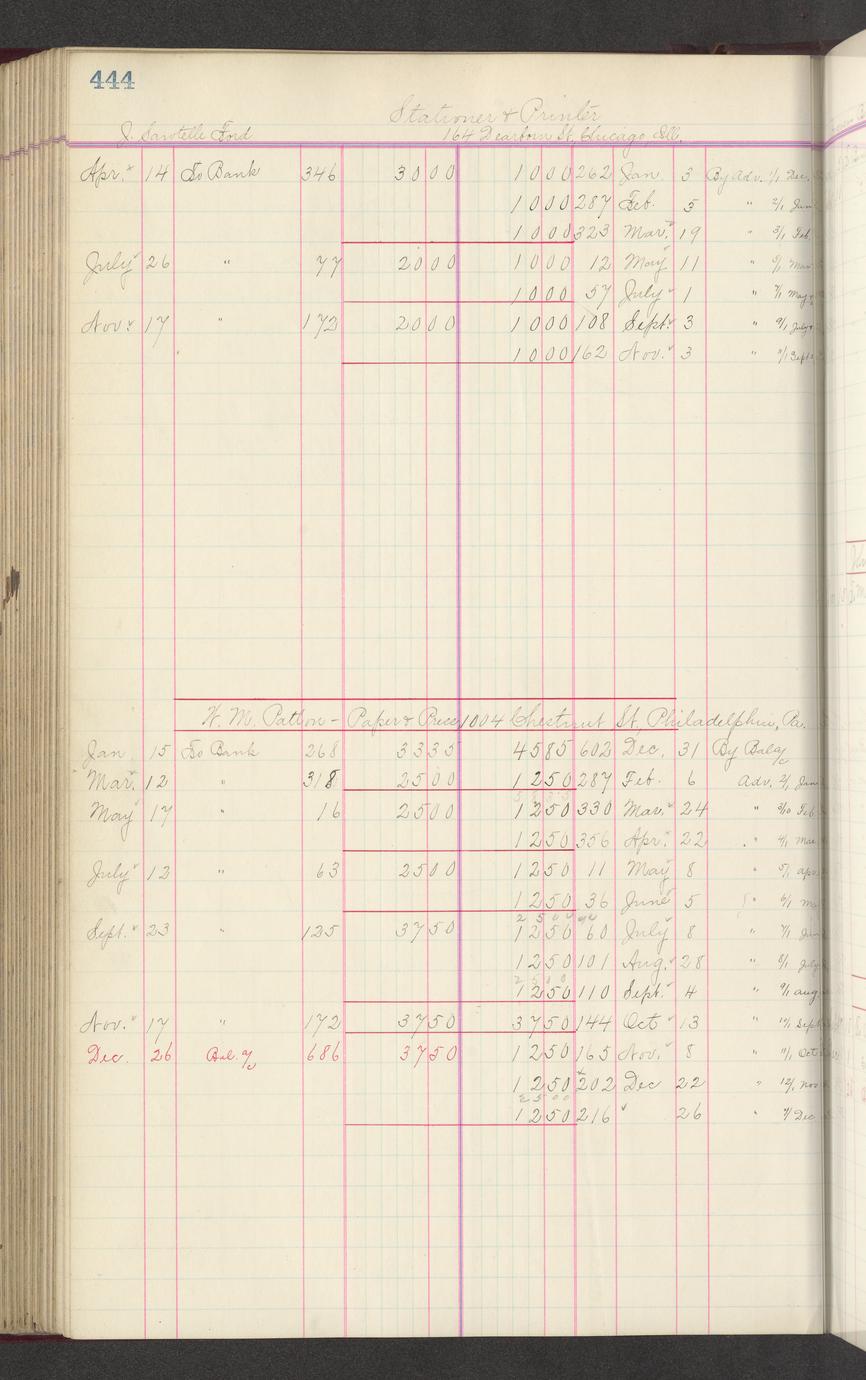 444
Stationer & Printer
J. Sawtelle Ford 164 Dearborn St, Chicago, Ill.
Apr. 14 To Bank 346 3000 1000 262 Jan 3 By Adv. 1/1 Dec.
1000 287 Feb. 5 " 2/1 Jan
1000 323 Mar. 19 " 3/1 Feb.
July 26 " 77 2000 1000 12 May 11 " 5/1 Mar
1000 57 July 1 " 7/1 May
Nov. 17 " 172 2000 1000 108 Sept. 3 " 9/1 July
1000 162 Nov. 3 " 11/1 Sept
H. M. Patton - Paper & Press 1004 Chestnut St, Philadelphia, Pa.
Jan 15 To Bank 268 3335 4585 602 Dec. 31 By Bal a/c
Mar. 12 " 318 2500 1250 287 Feb. 6 Adv. 2/1 Jan
May 17 " 16 2500 1250 330 Mar. 24 " 3/10 Feb
1250 356 Apr. 22 " 4/1 Mar
July 12 " 63 2500 1250 11 May 8 " 5/1 Apr
1250 36 June 5 " 6/1 Ma
2500
Sept. 23 " 125 3750 1250 60 July 8 " 7/1 Jun
1250 101 Aug. 28 " 8/1 July
2500
1250 110 Sept. 4 " 9/1 Aug
Nov. 17 " 172 3750 3750 144 Oct 13 " 10/1 Sept
Dec. 26 Bal. a/c 686 3750 1250 165 Nov. 8 " 11/1 Oct
1250 202 Dec 22 " 12/1 Nov
2500
1250 216 " 26 " 1/1 Dec